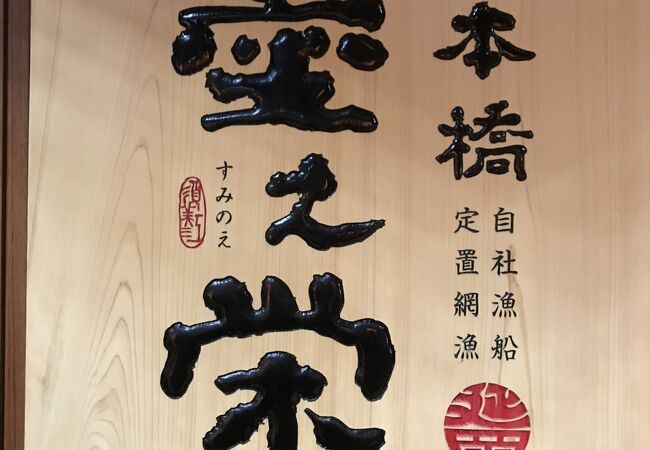 本橋
自社漁船
定置網漁
墨之栄
すみのえ
須美江